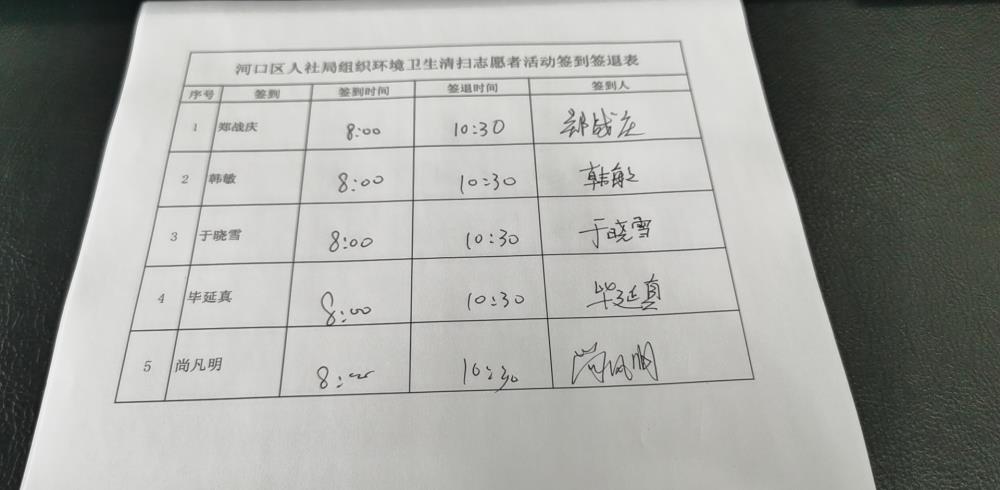 河口区人社局组织环境卫生清扫志愿者活动签到签退表
序号 签到 签到时间 签退时间 签到人
1 郑战庆 8:00 10:30 郑战庆
2 韩敏 8:00 10:30 韩敏
3 于晓雪 8:00 10:30 于晓雪
4 毕延真 8:00 10:30 毕延真
5 尚凡明 8:00 10:30 尚凡明